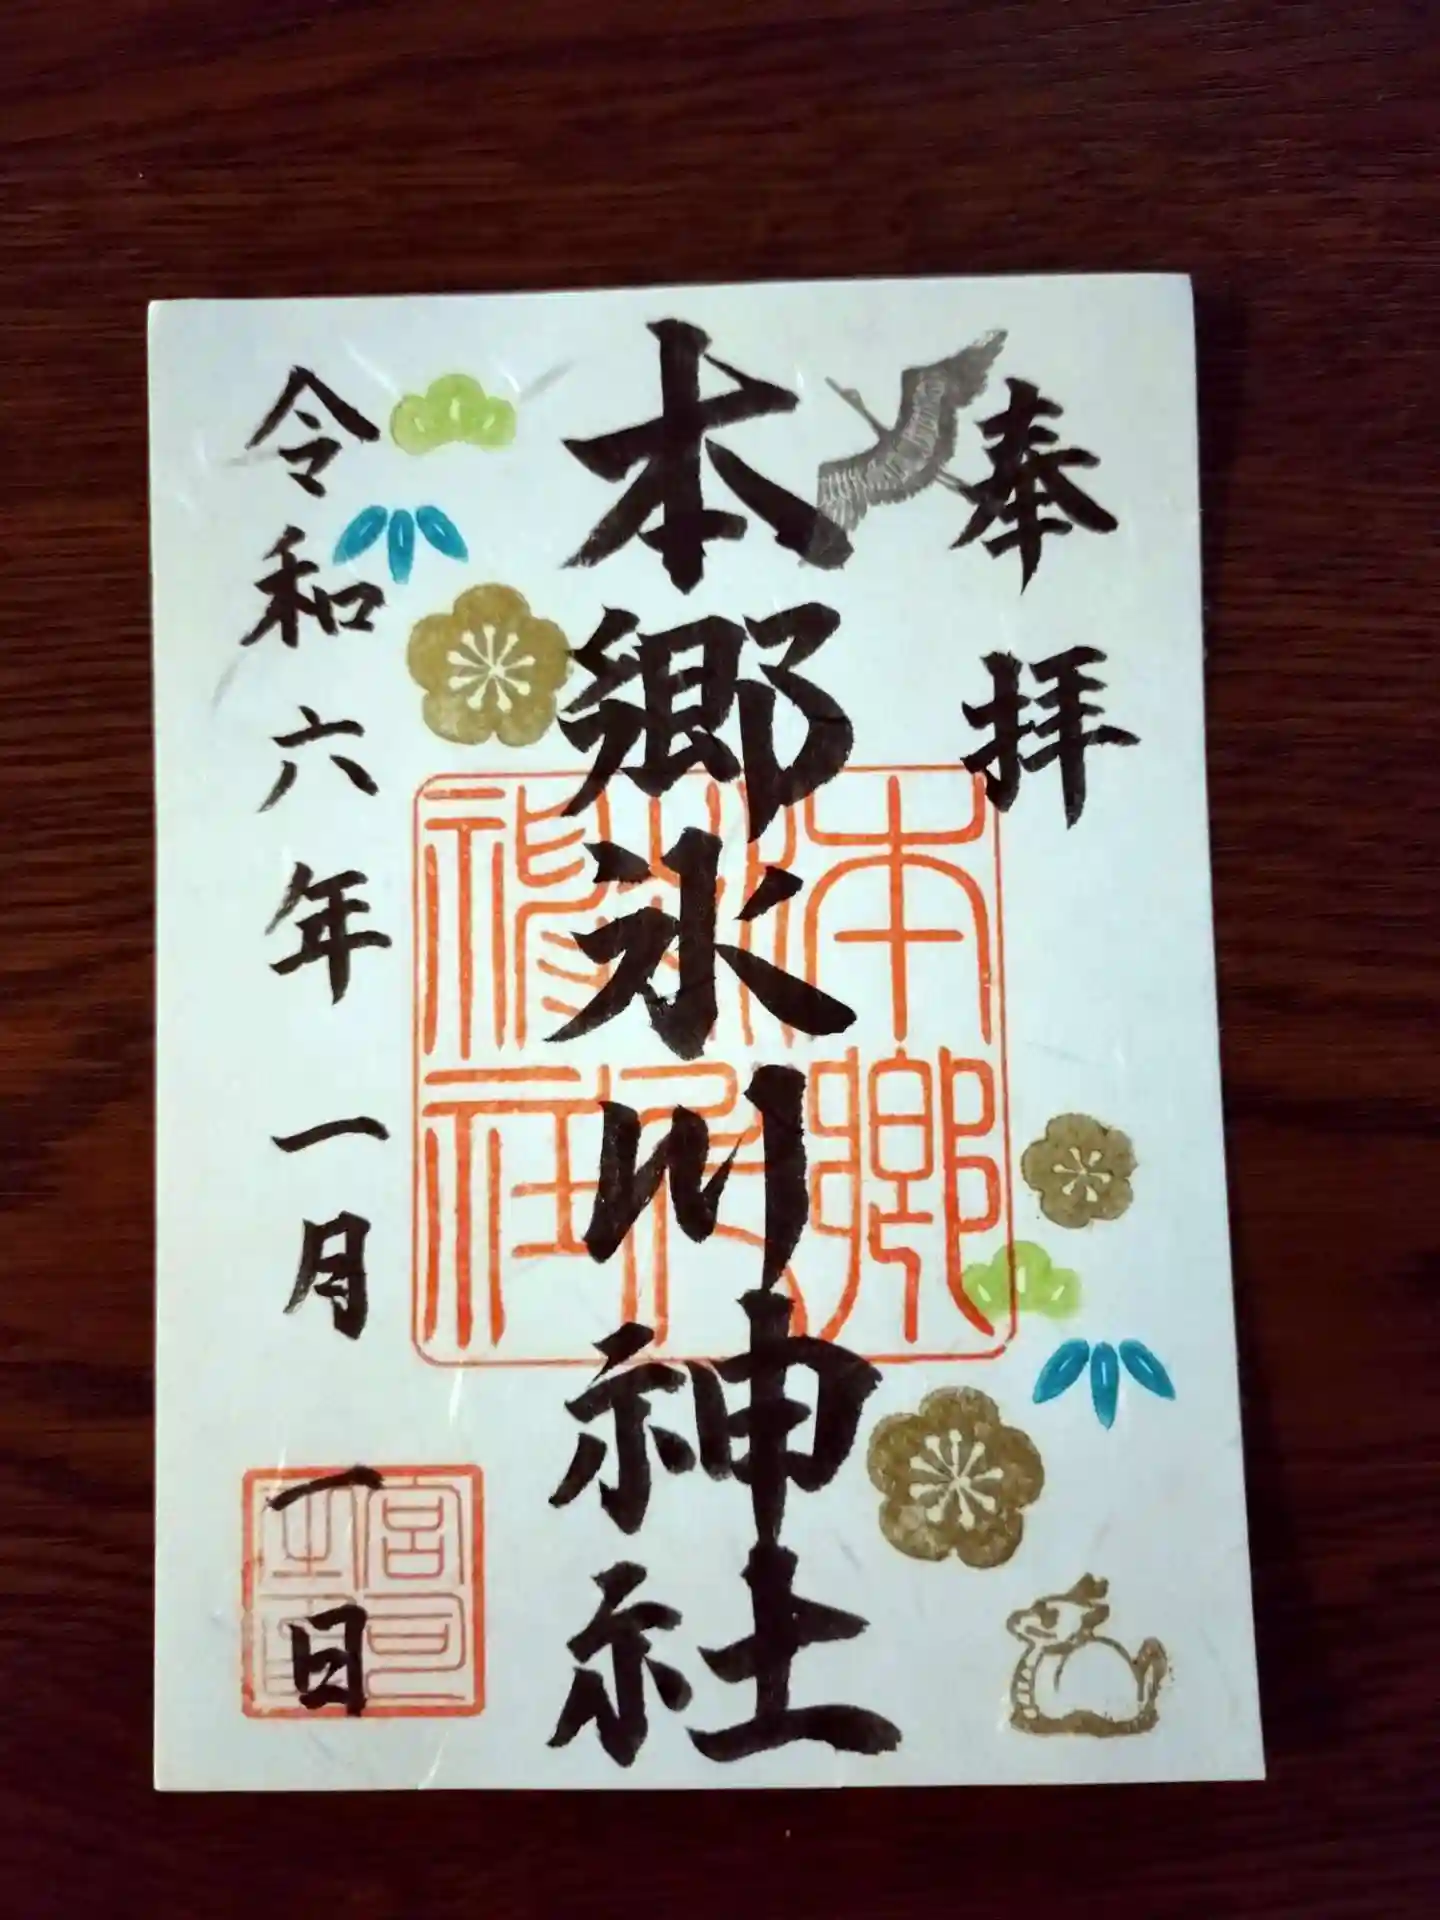 奉拝
本郷氷川神社
令和六年一月一日
本郷
氷川
神社
宮司
之印